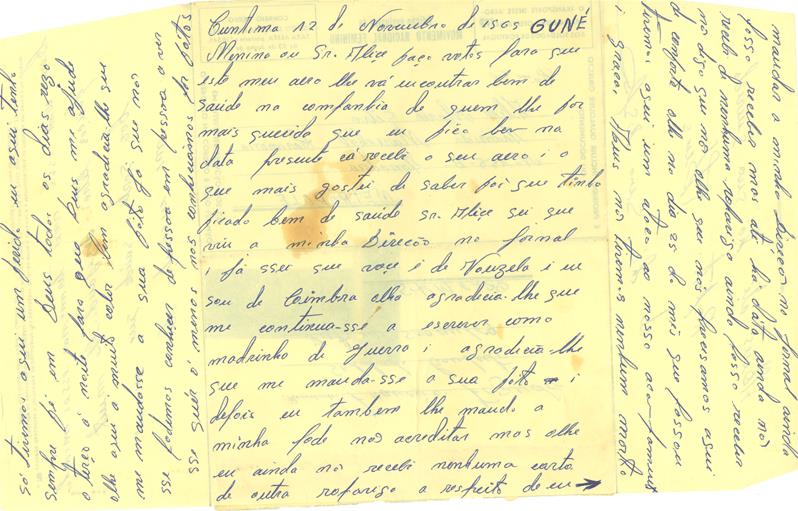 Cuntima 12 de Novembro de 1969 GUNÉ
Menina ou Sr. Alice faço votos para que
este meu aero lhe vá incontrar bem de
saúde na companhia de quem lhe for
mais querido que eu fico bem na
data presente cá recebi o seu aero i o
que mais gostei de saber foi que tinha
ficado bem de saúde Sr. Alice sei que
viu a minha Direcção no Jornal
i já ssei que voçe i de Vouzela i eu
sou de Coimbra olhe agradecia-lhe que
me continua-sse a escrever como
madrinha de Guerra i agradecia-lhe
que me manda-sse a sua foto i
depois eu tambem lhe mando a
minha pode nos acreditar mas olhe
eu ainda nó recebi nenhuma carta
de outra rapariga a respeito de eu →
mandar a minha Direcó no Jornal ainda
posso receber mas até há dáta ainda nó
recebi d nenhuma rapariga ainda posso receber
no digo que nó olhe que nós passamos aqui
de conforte olhe no dia 25 do mês que passou
tivemos aqui um ataco ao nosso
i graças Deus nó tivemos nenhum morto
só tivemos aqui um ferido eu aqui tenho
sempre fé em Deus todos os dias rezo
o terço á noite para que Deus me ajude
olhe aqui á muito calor bem agradecia-lhe que
me mandasse a sua foto já que nós
sse podemos conhecer de pessoa em pessoa a ver
sse quer ó menos nos conheciamos por fotos